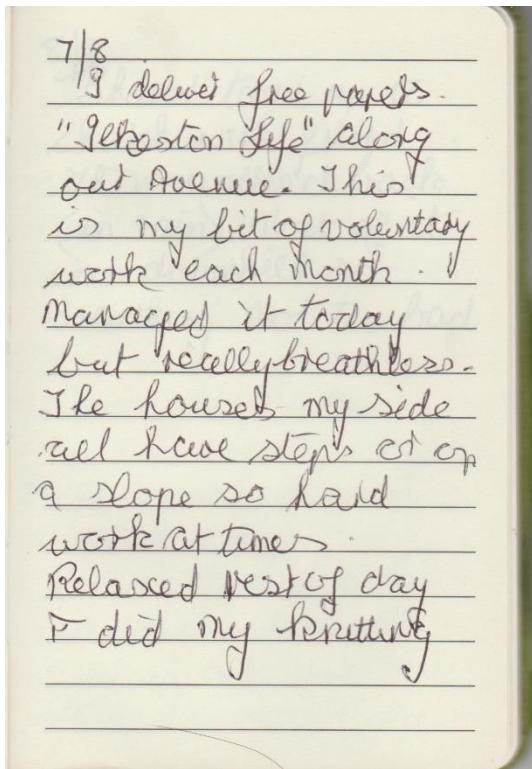 7/8
I deliver free papers.
"Ilkeston Life" along
our Avenue. This
is my bit of voluntary
work each month.
Managed it today
but really breathless.
The houses my side
all have steps or on
a slope so hard
work at times.
Relaxed rest of day
& did my knitting